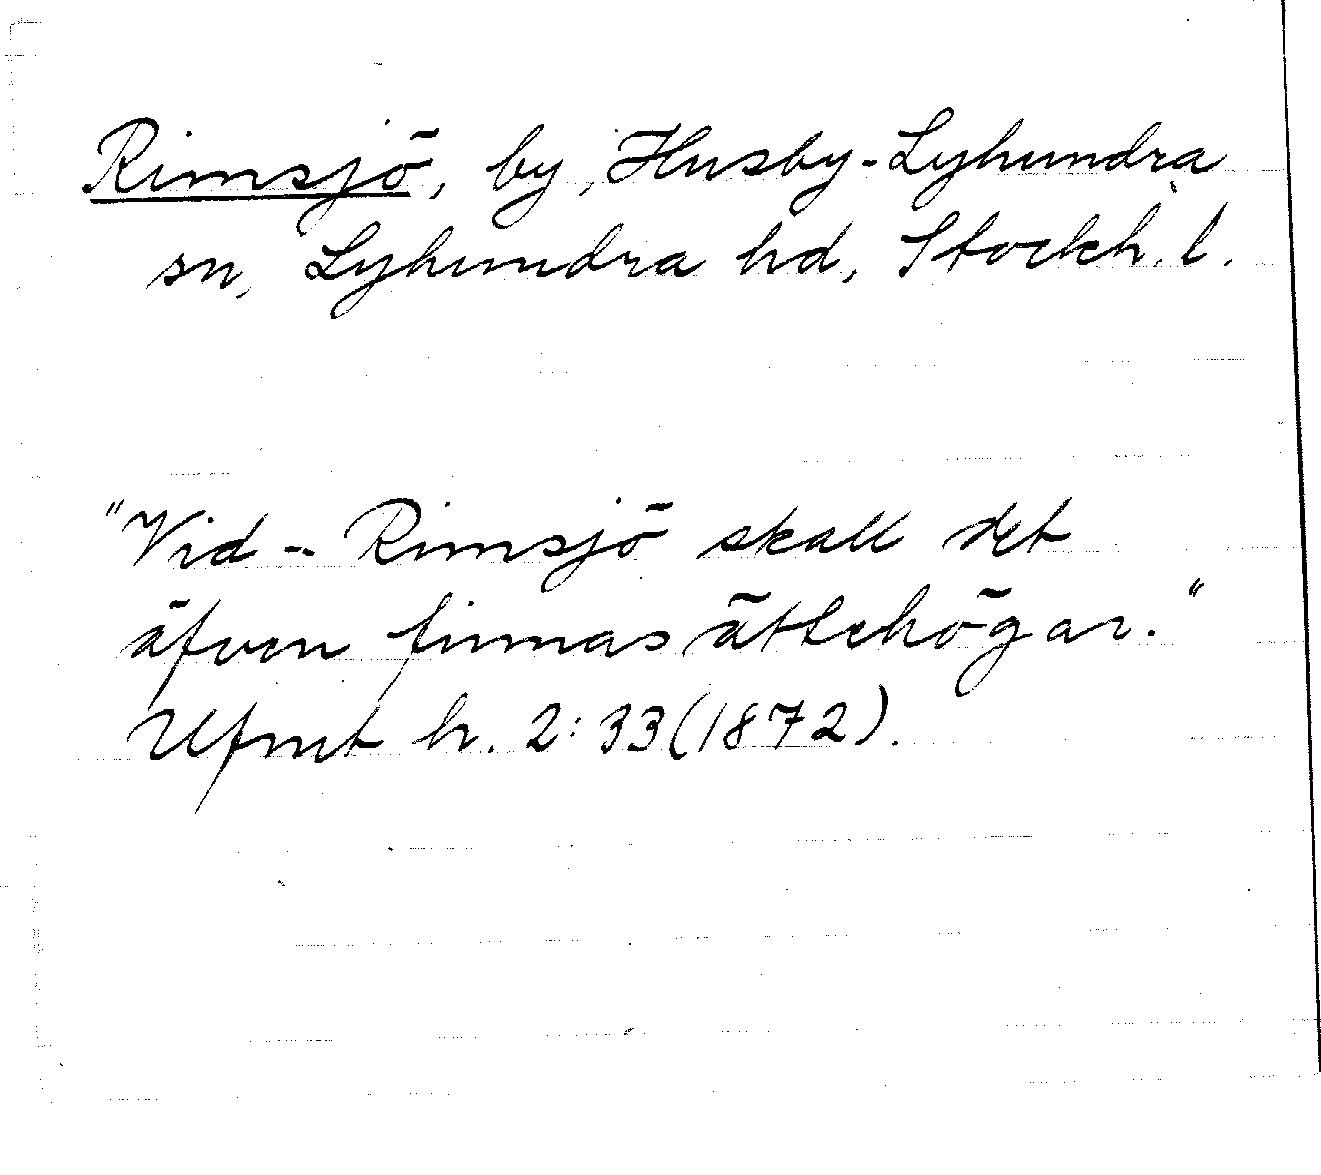 Rimsjö, by, Husby-Lyhundra
sn, Lyhundra hd, Stockh. l.
"Vid -- Rimsjö skall det
äfven finnas ättehögar."
Ufmt h. 2:33 (1872).